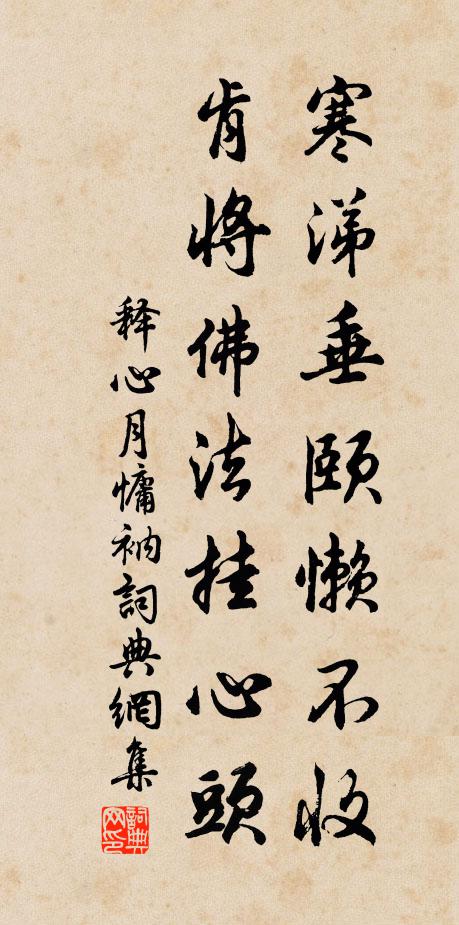 寒涕垂頤懶不收
肯將佛法挂心頭
释心月慵衲詞典網集
詞典网印